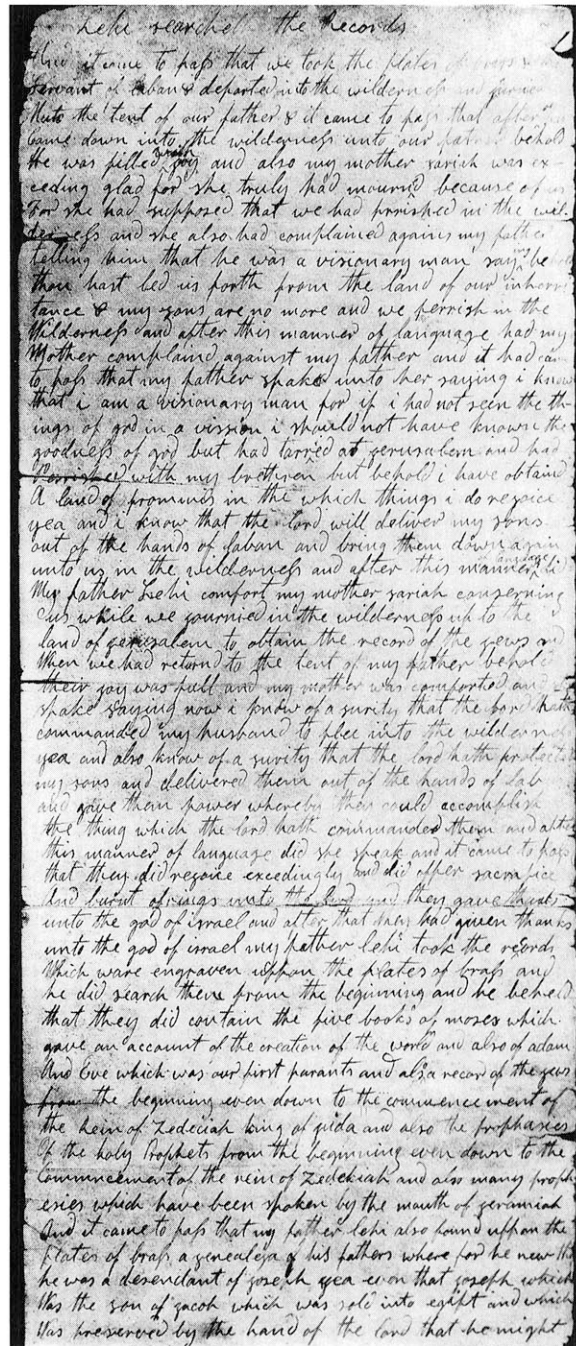 Lehi searched the Records
And it came to pass that we took the plates of brass &
servant of laban & departed into the wilderness and
unto the tent of our father & it came to pass that after
came down into the wilderness unto our father behold
he was filled with joy and also my mother sariah was ex-
ceding glad for she truly had mournd because of us
For she had supposed that we had perrished in the wil-
derness and she also had complained agains my father
telling him that he was a visionary man saying behold
thou hast led us forth from the land of our inherri
tance & my sons are no more and we perrish in the
Wilderness and after this manner of language had my
Mother complaind against my father and it had came
to pass that my father spake unto her saying i know
that i am a visionary man for if i had not seen the th-
ings of god in a vission i should not have known the
goodness of god but had tarried at jerusalem and had
perrished with my brethren but behold i have obtaind
A land of prommis in the which things i do rejoice
yea and i know that the lord will deliver my sons
out of the hands of laban and bring them down again
unto us in the wilderness and after this manner of language did
My father Lehi comfort my mother sariah conserning
us while we journied in the wilderness up to the
land of jerusalem to obtain the record of the jews and
When we had returnd to the tent of my father behold
their joy was full and my mother was comforted and
spake saying now i know of a surity that the lord hath
commanded my husband to flee into the wilderness
yea and also know of a surity that the lord hath protected
my sons and delivered them out of the hands of lab
and gave them power whereby they could accomplish
the thing which the lord hath commanded them and after
this manner of language did she speak and it came to pass
that they did rejoice excedingly and did offer sacrafice
and burnt ofrings unto the lord and they gave thanks
unto the god of israel and after that they had given thanks
unto the god of israel my father lehi took the records
Which ware engraven uppon the plates of brass and
he did search them from the beginning and he beheld
that they did contain the five books of moses which
gave an account of the creation of the world and also of adam
And Eve which was our first parants and also a recor of the jews
from the beginning even down to the commencement of
the rein of Zedeciah king of juda and also the prophasies
Of the holy Prophets from the beginning even down to the
Commncement of the rein of Zedekiah and also many proph
esies which have been spoken by the mouth of jeramiah
And it came to pass that my father lehi also found uppon the
plates of brass a genealogy of his fathers where for he new that
he was a desendant of joseph yea even that joseph which
Was the son of jacob which was sold into egipt and which
Was preserved by the hand of the lord that he might